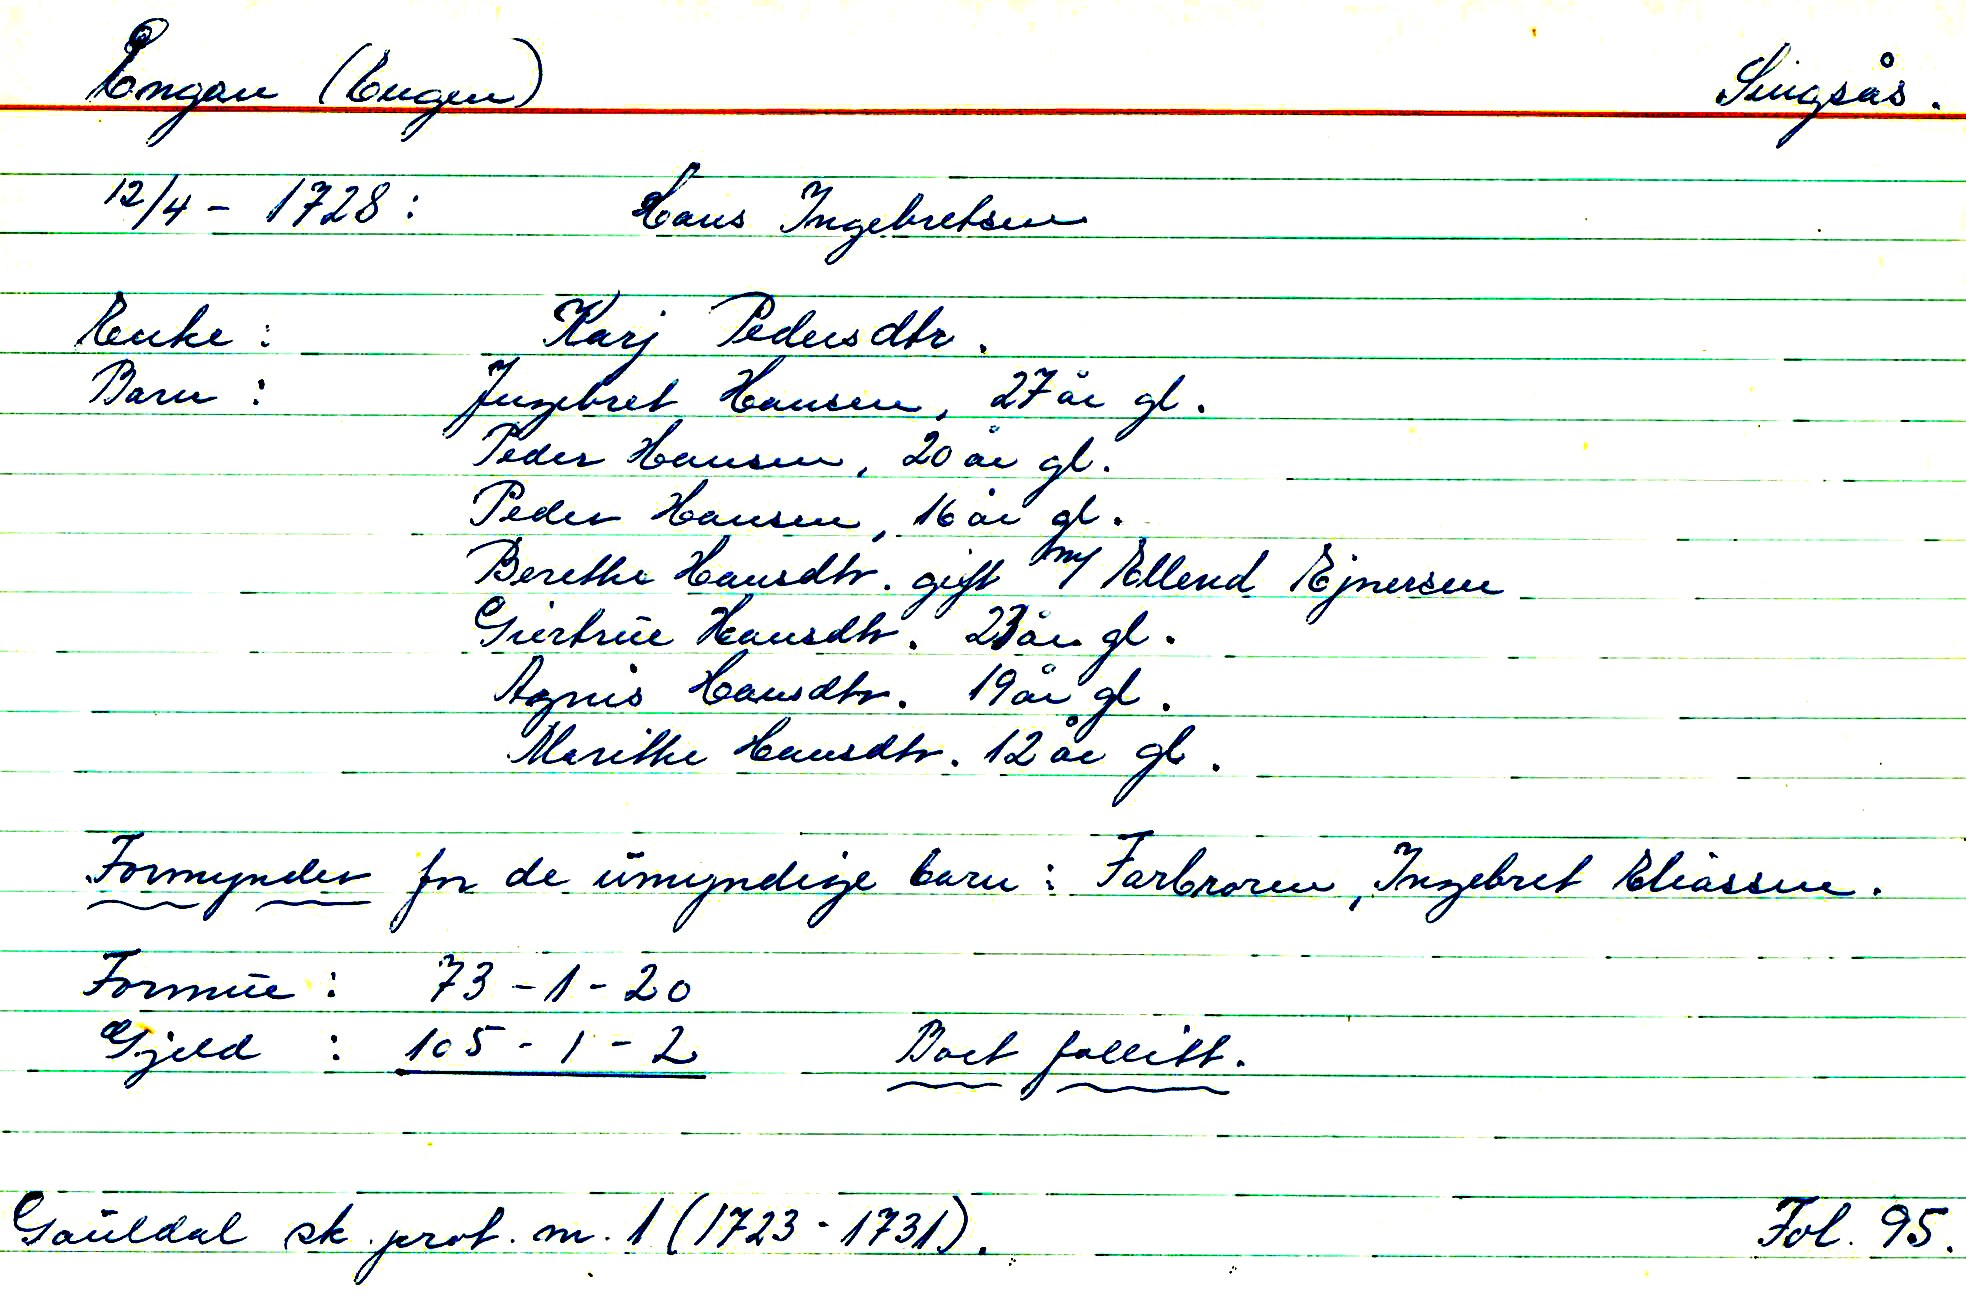 Engan (Engen) Singsås.
12/4 - 1728: Hans Ingebretsen
Enke: Karj Pedersdtr.
Barn: Jngebret Hansen, 27 år gl.
Peder Hansen, 20 år gl.
Peder Hansen, 16 år gl.
Berethe Hansdtr. gift m/ Ellend Ejnersen
Giertrue Hansdtr. 23 år gl.
Agnis Hansdtr. 19 år gl.
Marithe Hansdtr. 12 år gl.
Formynder for de umyndige barn: Farbroren, Ingebret Eliassen.
Formue: 73 - 1 - 20
Gjeld: 105 - 1 - 2 Boet fallitt.
Gauldal sk. prot. nr. 1 (1723 - 1731). Fol. 95.